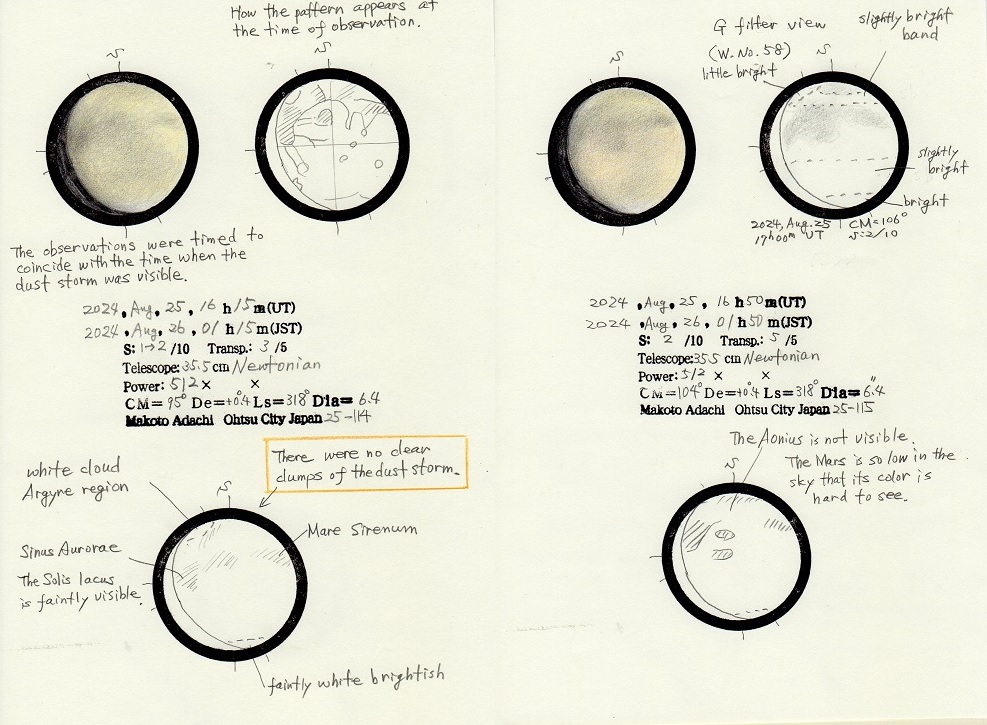 How the pattern appears at
the time of observation.
S
S
The observations were timed to
coincide with the time when the
dust storm was visible.
2024, Aug, 25, 16 h 15 m(UT)
2024, Aug, 26, 01 h 15 m(JST)
S: 1→2 /10 Transp.: 3 /5
Telescope: 35.5 cm Newtonian
Power: 512 × ×
CM= 95° De=+0.°4 Ls=318° Dia= 6.4
Makoto Adachi Ohtsu City Japan 25-114
There were no clear
clumps of the dust storm.
white cloud
Argyre region
S
Mare Sirenum
Sinus Aurorae
The Solis lacus
is faintly visible.
faintly white brightish
G filter view
(W. No. 58)
little bright
slightly bright
band
S
S
slightly
bright
bright
2024, Aug. 25 CM=106°
17h00m UT S:2/10
2024, Aug, 25, 16 h 50 m(UT)
2024, Aug, 26, 01 h 50 m(JST)
S: 2 /10 Transp.: 5 /5
Telescope: 35.5 cm Newtonian
Power: 512 × ×
CM=104° De=+0.°4 Ls=318° Dia= 6.″4
Makoto Adachi Ohtsu City Japan 25-115
The Aonius is not visible.
The Mars is so low in the
sky that its color is
hard to see.
S